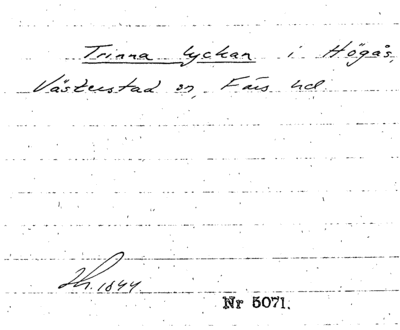 Trinna lyckan i Högås,
Västerstad sn, Färs hd.
Lh. 1844
Nr 5071.